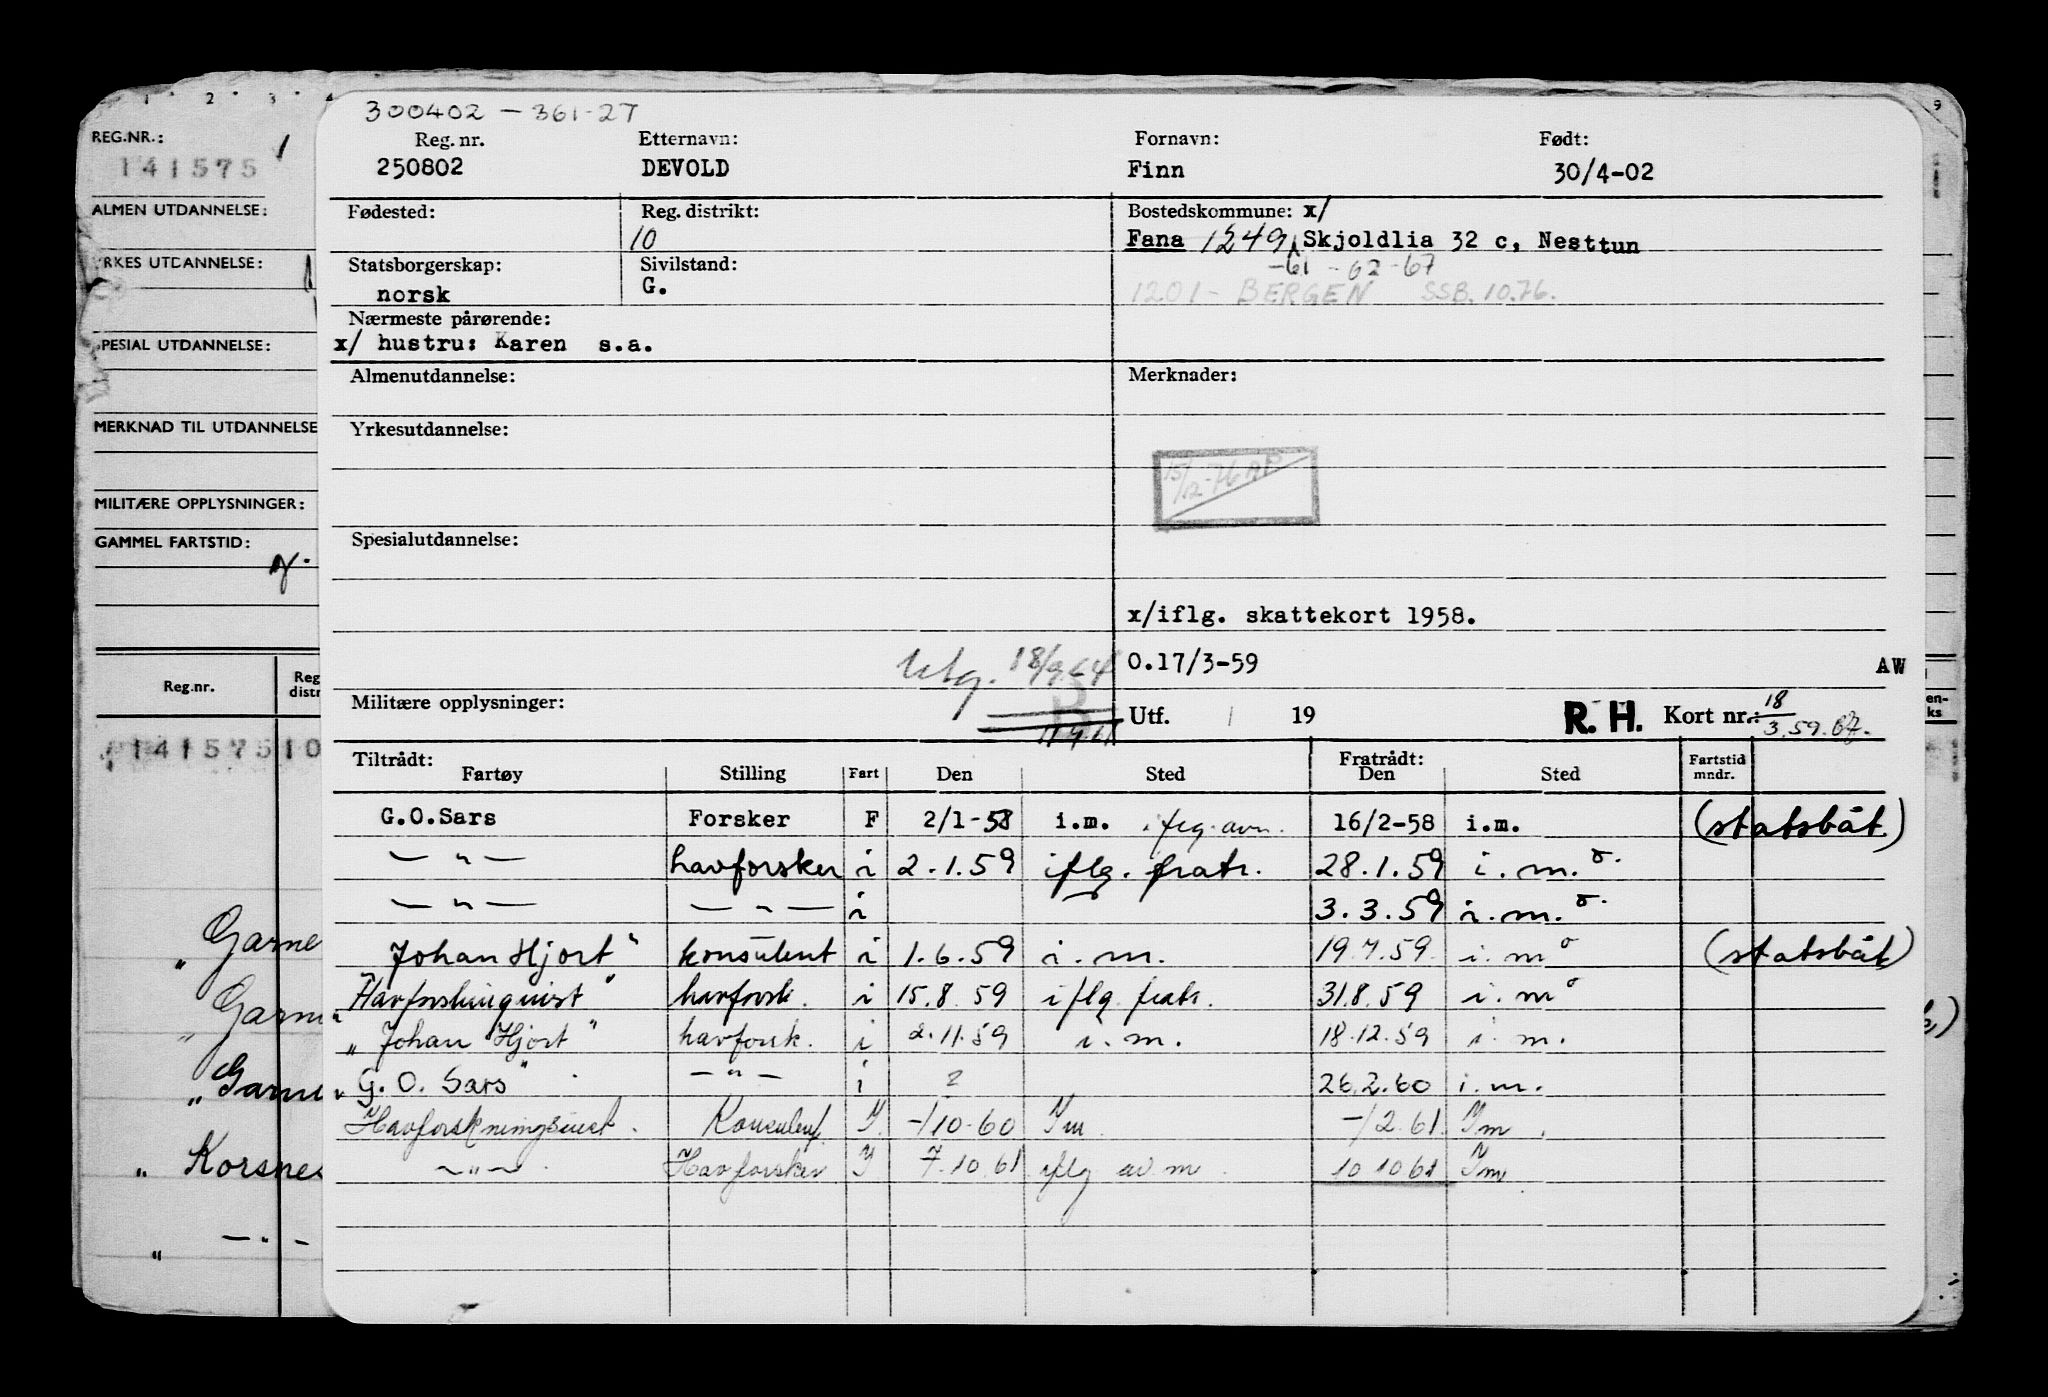 1 2 3
9
300402 — 361-27
REG.NR.:
141575
Reg. nr. Etternavn: Fornavn: Født:
250802 DEVOLD Finn 30/4-02
ALMEN UTDANNELSE:
Fødested: Reg. distrikt: Bostedskommune: x/
10 Fana 1249 Skjoldlia 32 c, Nesttun
YRKES UTDANNELSE:
Statsborgerskap: Sivilstand: -61 - 62 - 67
norsk G. 1201 - BERGEN SSB. 10.76.
Nærmeste pårørende:
SPESIAL UTDANNELSE:
x/ hustru: Karen s.a.
Almenutdannelse: Merknader:
MERKNAD TIL UTDANNELSE
Yrkesutdannelse:
15/12-76
MILITÆRE OPPLYSNINGER:
GAMMEL FARTSTID:
Spesialutdannelse:
x/iflg. skattekort 1958.
Utg. 18/9 64 O.17/3-59 AW
Reg.nr. Reg distr
Militære opplysninger: Utf. / 19 R. H. Kort nr.: 18/3.59.
141575 10
Tiltrådt: Fratrådt: Fartstid
Fartøy Stilling Fart Den Sted Den Sted mndr.
G.O.Sars Forsker F 2/1-58 i.m. 16/2-58 i.m. (statsbåt)
— " — havforsker i 2.1.59 iflg. fratr. 28.1.59 i.m.
— " — — " — i 3.3.59 i.m.
„ Garne
Johan Hjort" konsulent i 1.6.59 i.m. 19.7.59. i.m (statsbåt)
havforsk. i 15.8.59 iflg. fratr. 31.8.59 i.m
„ Garn
„ Johan Hjort" havforsk. i 2.11.59 i.m. 18.12.59 i.m.
„ Garne
„ G. O. Sars" — " — i 2 26.2.60 i.m.
Konsulent. Y. -/10-60 Ym -/2.61. Ym
„ Korsnes
— " — Havforsker Y 7.10.61 iflg av m 10 10 61 Ym
„ — " —